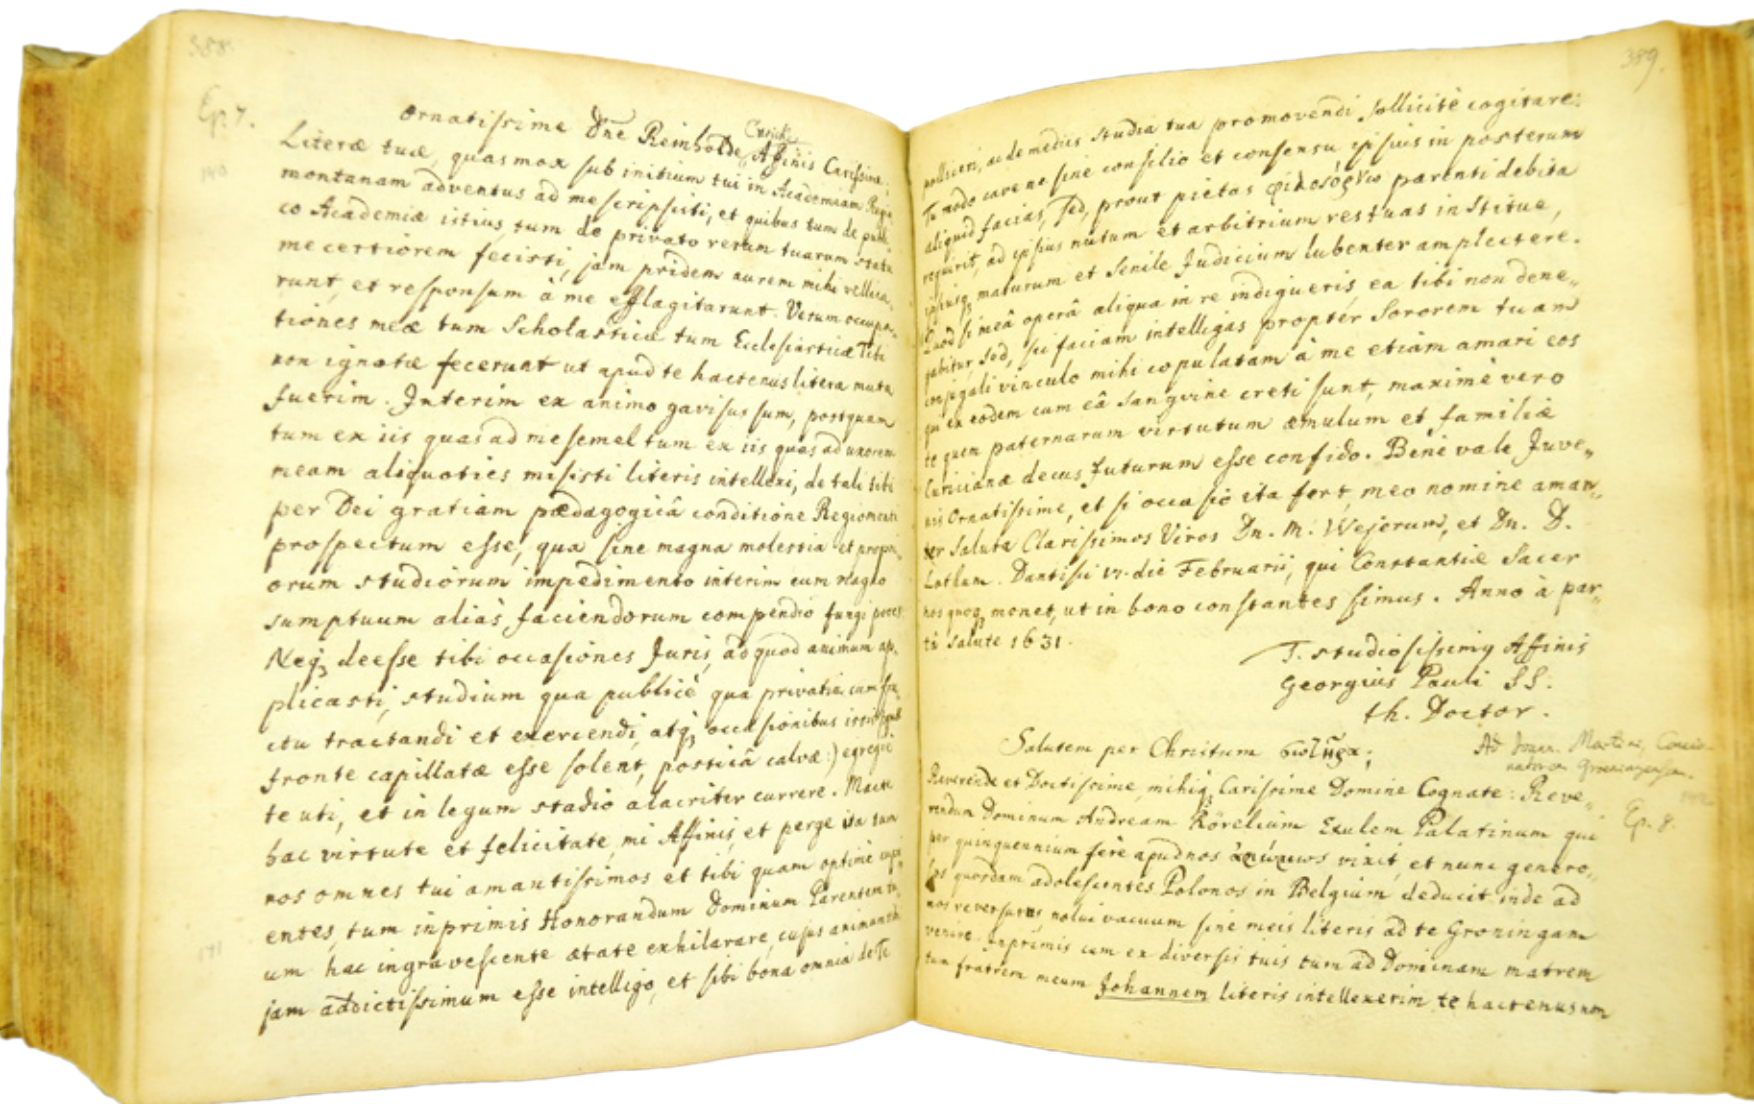 388.
Ep. 7.
Ornatissime Dne Reinholde Affinis Carissime;
Curicke
Literæ tuæ, quas mox sub initium tui in Academiam Regio
140
montanam adventus ad me scripsisti, et quibus tum de publi
co Academiæ istius, tum de privato rerum tuarum statu
me certiorem fecisti, jam pridem aurem mihi vellica,,
runt, et responsum à me efflagitarunt. Verum occupa,,
tiones meæ tum Scholasticæ tum Ecclesiasticæ Tibi
non ignotæ fecerunt ut apud te hactenus litera muta
fuerim. Interim ex animo gavisus sum, postquam
tum ex iis quas ad me semel tum ex iis quas ad uxorem
meam aliquoties misisti literis intellexi, de tali tibi
per Dei gratiam pædagogicâ conditione Regiomonti
prospectum esse, qua sine magna molestia et propri,,
orum studiorum impedimento interim cum magno
sumptuum aliàs faciendorum compendio fungi potes
Neq; deesse tibi occasiones Juris, ad quod animum ap,
plicasti, studium qua publicè qua privatim cum fru,
ctu tractandi et exercendi, atq; occasionibus istis
fronte capillatæ esse solent, posticâ calvæ:) egregiè
te uti, et in legum stadio alacriter currere. Macte
hac virtute et felicitate, mi Affinis, et perge ita tum
nos omnes tui amantissimos et tibi quam optimè cupi
entes, tum inprimis Honorandum Dominum Parentem tu,
um hac ingravescente ætate exhilarare, cujus animum
141
jam addictissimum esse intelligo, et sibi bona omnia de Te
389.
polliceri, ac de mediis studia tua promovendi sollicitè cogitare.
Tu modo cave ne sine consilio et consensu ipsius in posterum
aliquid facias, sed, prout pietas φιλοσόργῳ parenti debita
requirit, ad ipsius nutum et arbitrium res tuas institue,
ipsiusq; maturum et senile Judicium lubenter amplectere.
Quod si meâ operâ aliqua in re indigueris, ea tibi non dene,,
gabitur, sed, sic faciam intelligas propter Sororem tuam
conjugali vinculo mihi copulatam à me etiam amari eos
qui ex eodem cum eâ sangvine creti sunt, maximè vero
te quem paternarum virtutum æmulum et familiæ
Curicianæ decus futurum esse confido. Benè vale Juve,,
nis Ornatissime, et si occasio ita fert, meo nomine aman,,
ter saluta Clarissimos Viros Dn. M. Wejerum, et Dn. D.
Lotlum. Dantisci 17. die Februarii, qui Constantiæ sacer
nos quoq; monet, ut in bono constantes simus. Anno à par,,
tâ salute 1631.
T. studiosissimg Affinis
Georgius Pauli SS.
th. Doctor.
Salutem per Christum σωτῆρα;
Ad Joan. Martini, Concio-
natorem Groningensem.
Reverende et Doctissime, mihiq; Carissime Domine Cognate: Reve,,
142
rendum Dominum Andream Körelium Exulem Palatinum qui
Ep. 8.
per quinquennium ferè apud nos vixit, et nunc genero,,
sos quosdam adolescentes Polonos in Belgium deducit inde ad
nos reversurus, nolui vacuum sine meis literis ad te Groningam
venire. Inprimis cum ex diversis tuis tum ad Dominam matrem
tum fratrem meum Johannem literis intellexerim te hactenus non